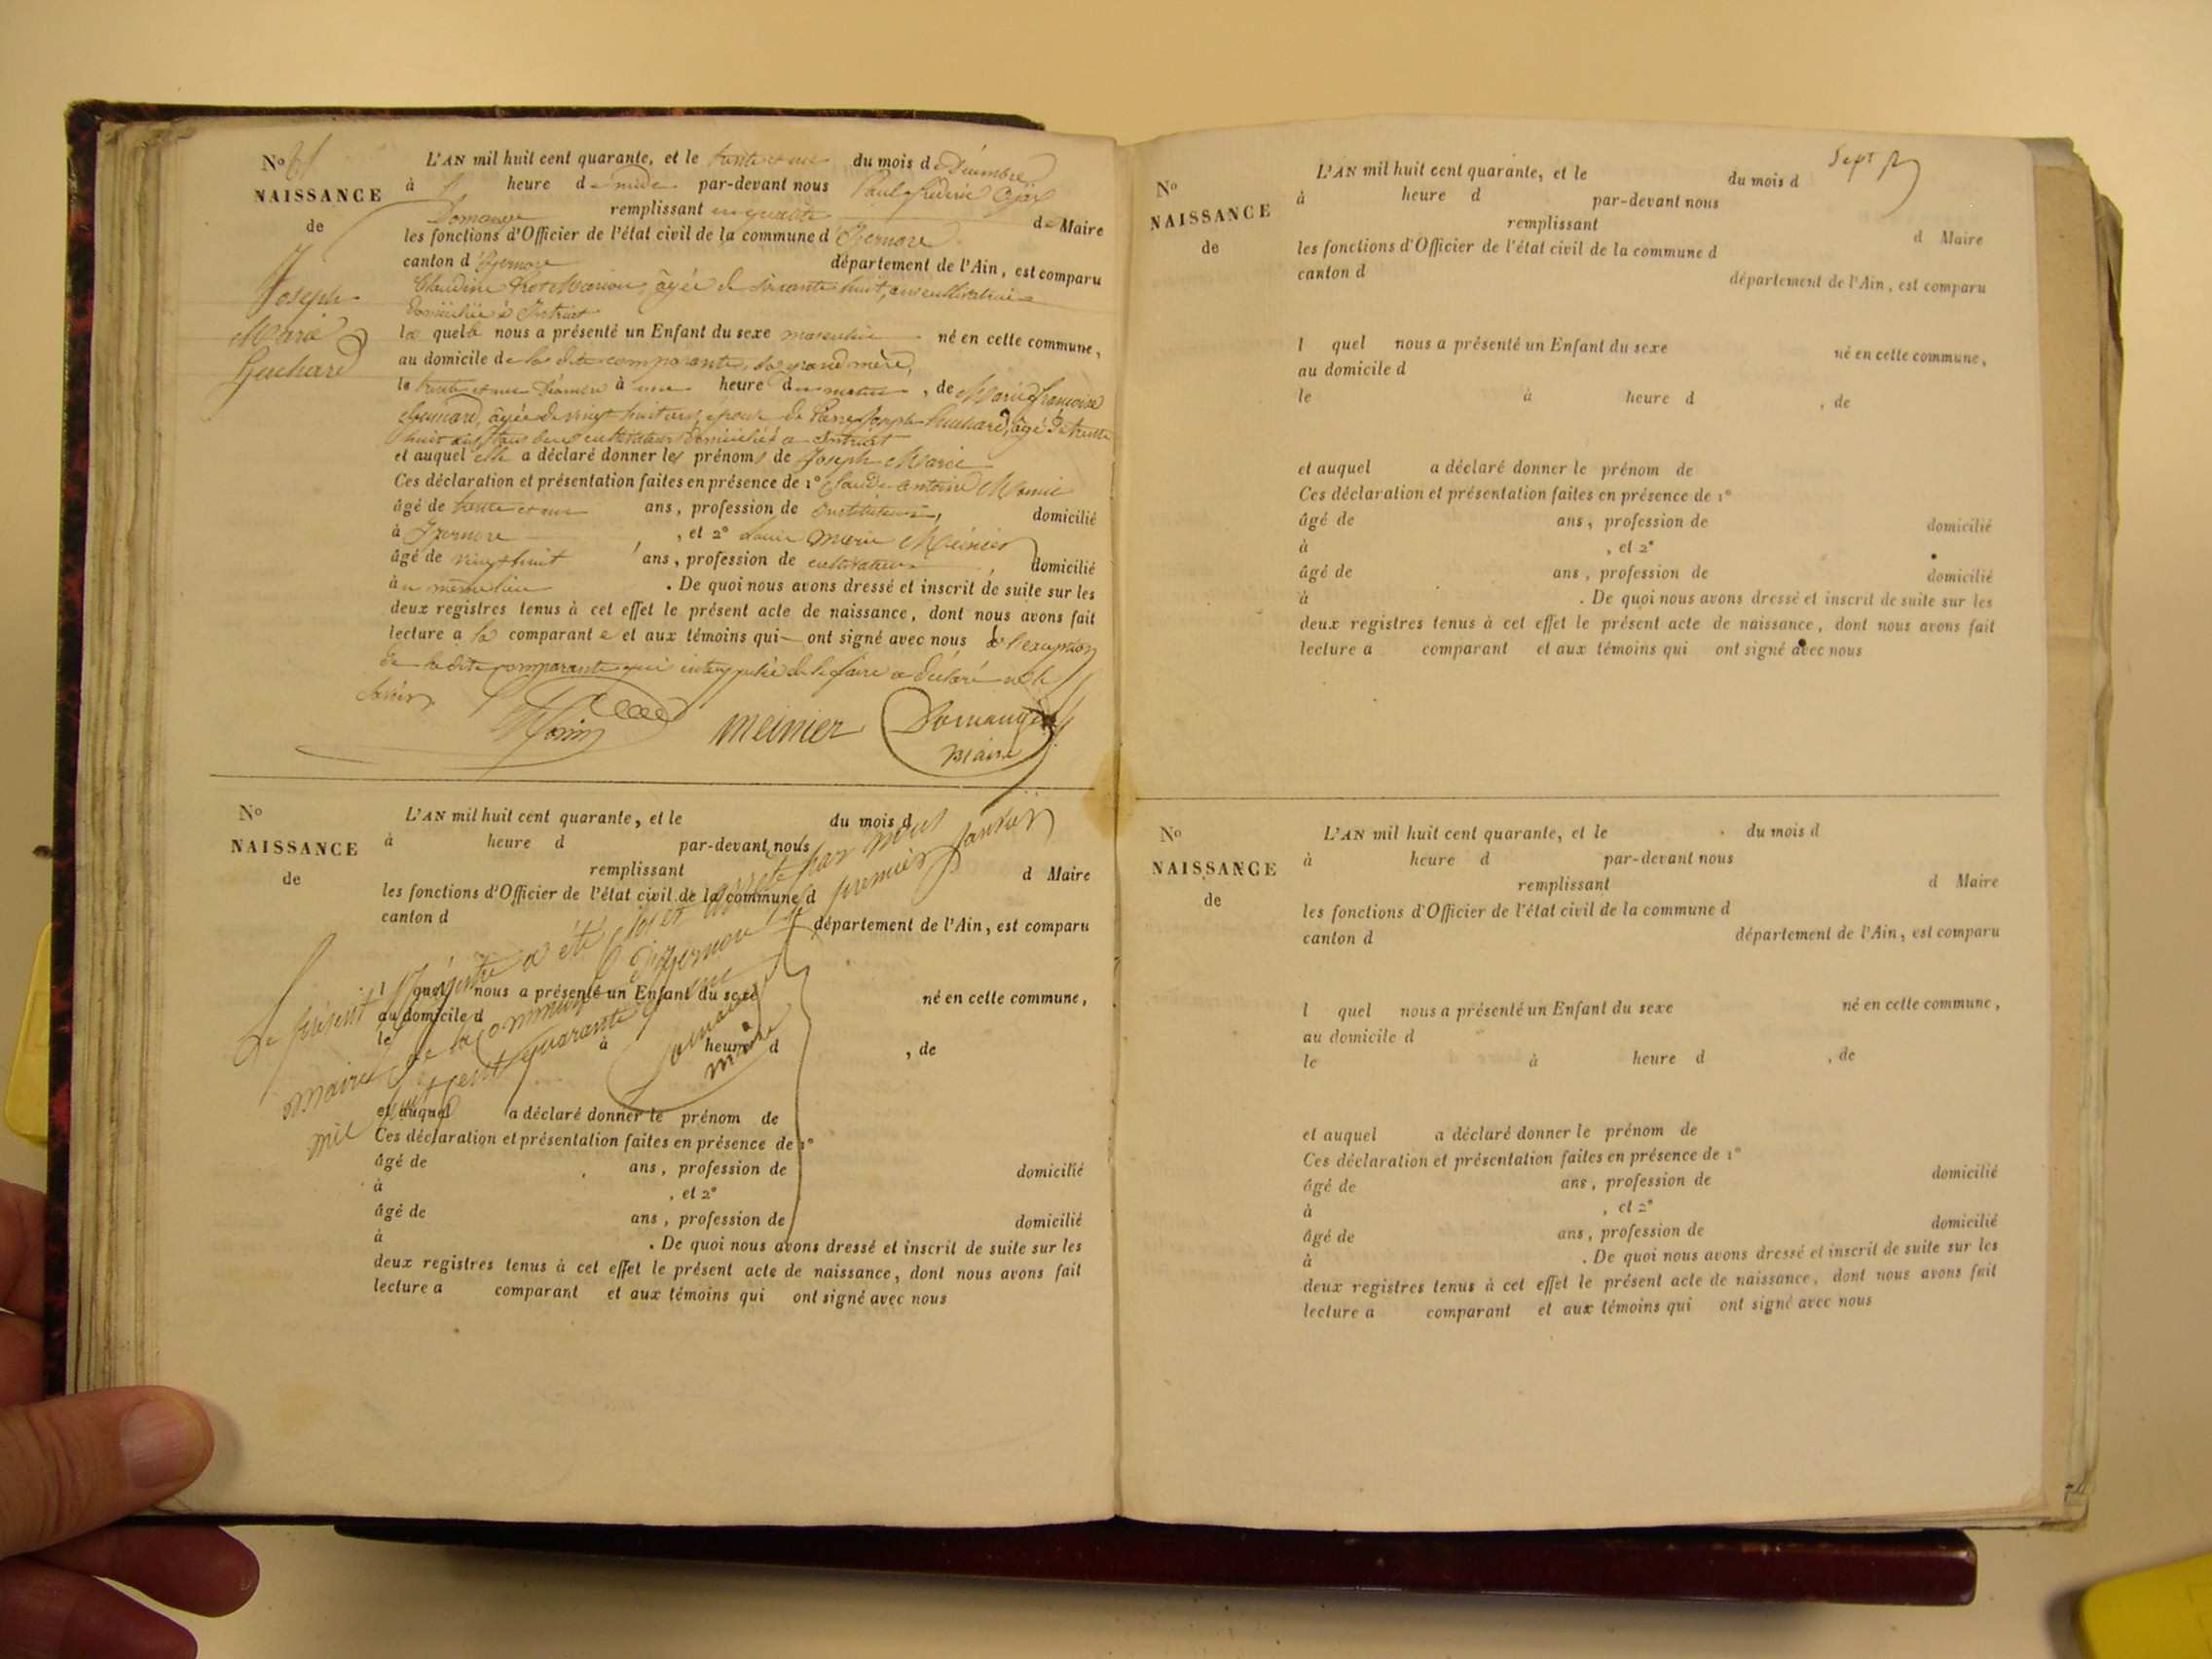 No
L'AN mil huit cent quarante, et le trente et un du mois de Décembre
NAISSANCE
à heure de midi par-devant nous Paul frédéric Ajax
Domange remplissant en qualité de Maire
de
les fonctions d'Officier de l'état civil de la commune d'Izernore
canton d'Izernore département de l'Ain, est comparu
Claudine âgée de soixante huit ans cultivatrice
domiciliée à Intriat
Joseph
Marie
la quelle nous a présenté un Enfant du sexe masculin né en cette commune,
au domicile de la dite comparante, sa grand mère,
le trente et un Décembre à une heure du matin, de Marie françoise
âgée de vingt huit ans, épouse de Pierre Joseph âgé de trente
huit ans tous deux cultivateurs domiciliés a Intriat
et auquel elle a déclaré donner les prénoms de Joseph Marie
Ces déclaration et présentation faites en présence de 1° Claude antoine
âgé de trente et un ans, profession de Instituteur, domicilié
à Izernore, et 2° Louis Marie Meinier
âgé de vingt huit ans, profession de cultivateur, domicilié
au même lieu. De quoi nous avons dressé et inscrit de suite sur les
deux registres tenus à cet effet le présent acte de naissance, dont nous avons fait
lecture a la comparante et aux témoins qui ont signé avec nous à l'exception
de la dite comparante qui interpellée de le faire a déclaré ne le
savoir
meinier Domange
maire
No
L'AN mil huit cent quarante, et le du mois d
NAISSANCE
à heure d par-devant nous
de
remplissant d Maire
les fonctions d'Officier de l'état civil de la commune d
canton d département de l'Ain, est comparu
l quel nous a présenté un Enfant du sexe né en cette commune,
au domicile d
le à heure d , de
et auquel a déclaré donner le prénom de
Ces déclaration et présentation faites en présence de 1°
âgé de ans, profession de domicilié
à , et 2°
âgé de ans, profession de domicilié
à . De quoi nous avons dressé et inscrit de suite sur les
deux registres tenus à cet effet le présent acte de naissance, dont nous avons fait
lecture a comparant et aux témoins qui ont signé avec nous
Le présent Régistre a été clos et arrêté par nous
maire de la Commune d'izernore le premier janvier
mil huit cent quarante un
Domange
maire
Sept
No
L'AN mil huit cent quarante, et le du mois d
NAISSANCE
à heure d par-devant nous
de
remplissant d Maire
les fonctions d'Officier de l'état civil de la commune d
canton d département de l'Ain, est comparu
l quel nous a présenté un Enfant du sexe né en cette commune,
au domicile d
le à heure d , de
et auquel a déclaré donner le prénom de
Ces déclaration et présentation faites en présence de 1°
âgé de ans, profession de domicilié
à , et 2°
âgé de ans, profession de domicilié
à . De quoi nous avons dressé et inscrit de suite sur les
deux registres tenus à cet effet le présent acte de naissance, dont nous avons fait
lecture a comparant et aux témoins qui ont signé avec nous
No
L'AN mil huit cent quarante, et le du mois d
NAISSANCE
à heure d par-devant nous
de
remplissant d Maire
les fonctions d'Officier de l'état civil de la commune d
canton d département de l'Ain, est comparu
l quel nous a présenté un Enfant du sexe né en cette commune,
au domicile d
le à heure d , de
et auquel a déclaré donner le prénom de
Ces déclaration et présentation faites en présence de 1°
âgé de ans, profession de domicilié
à , et 2°
âgé de ans, profession de domicilié
à . De quoi nous avons dressé et inscrit de suite sur les
deux registres tenus à cet effet le présent acte de naissance, dont nous avons fait
lecture a comparant et aux témoins qui ont signé avec nous